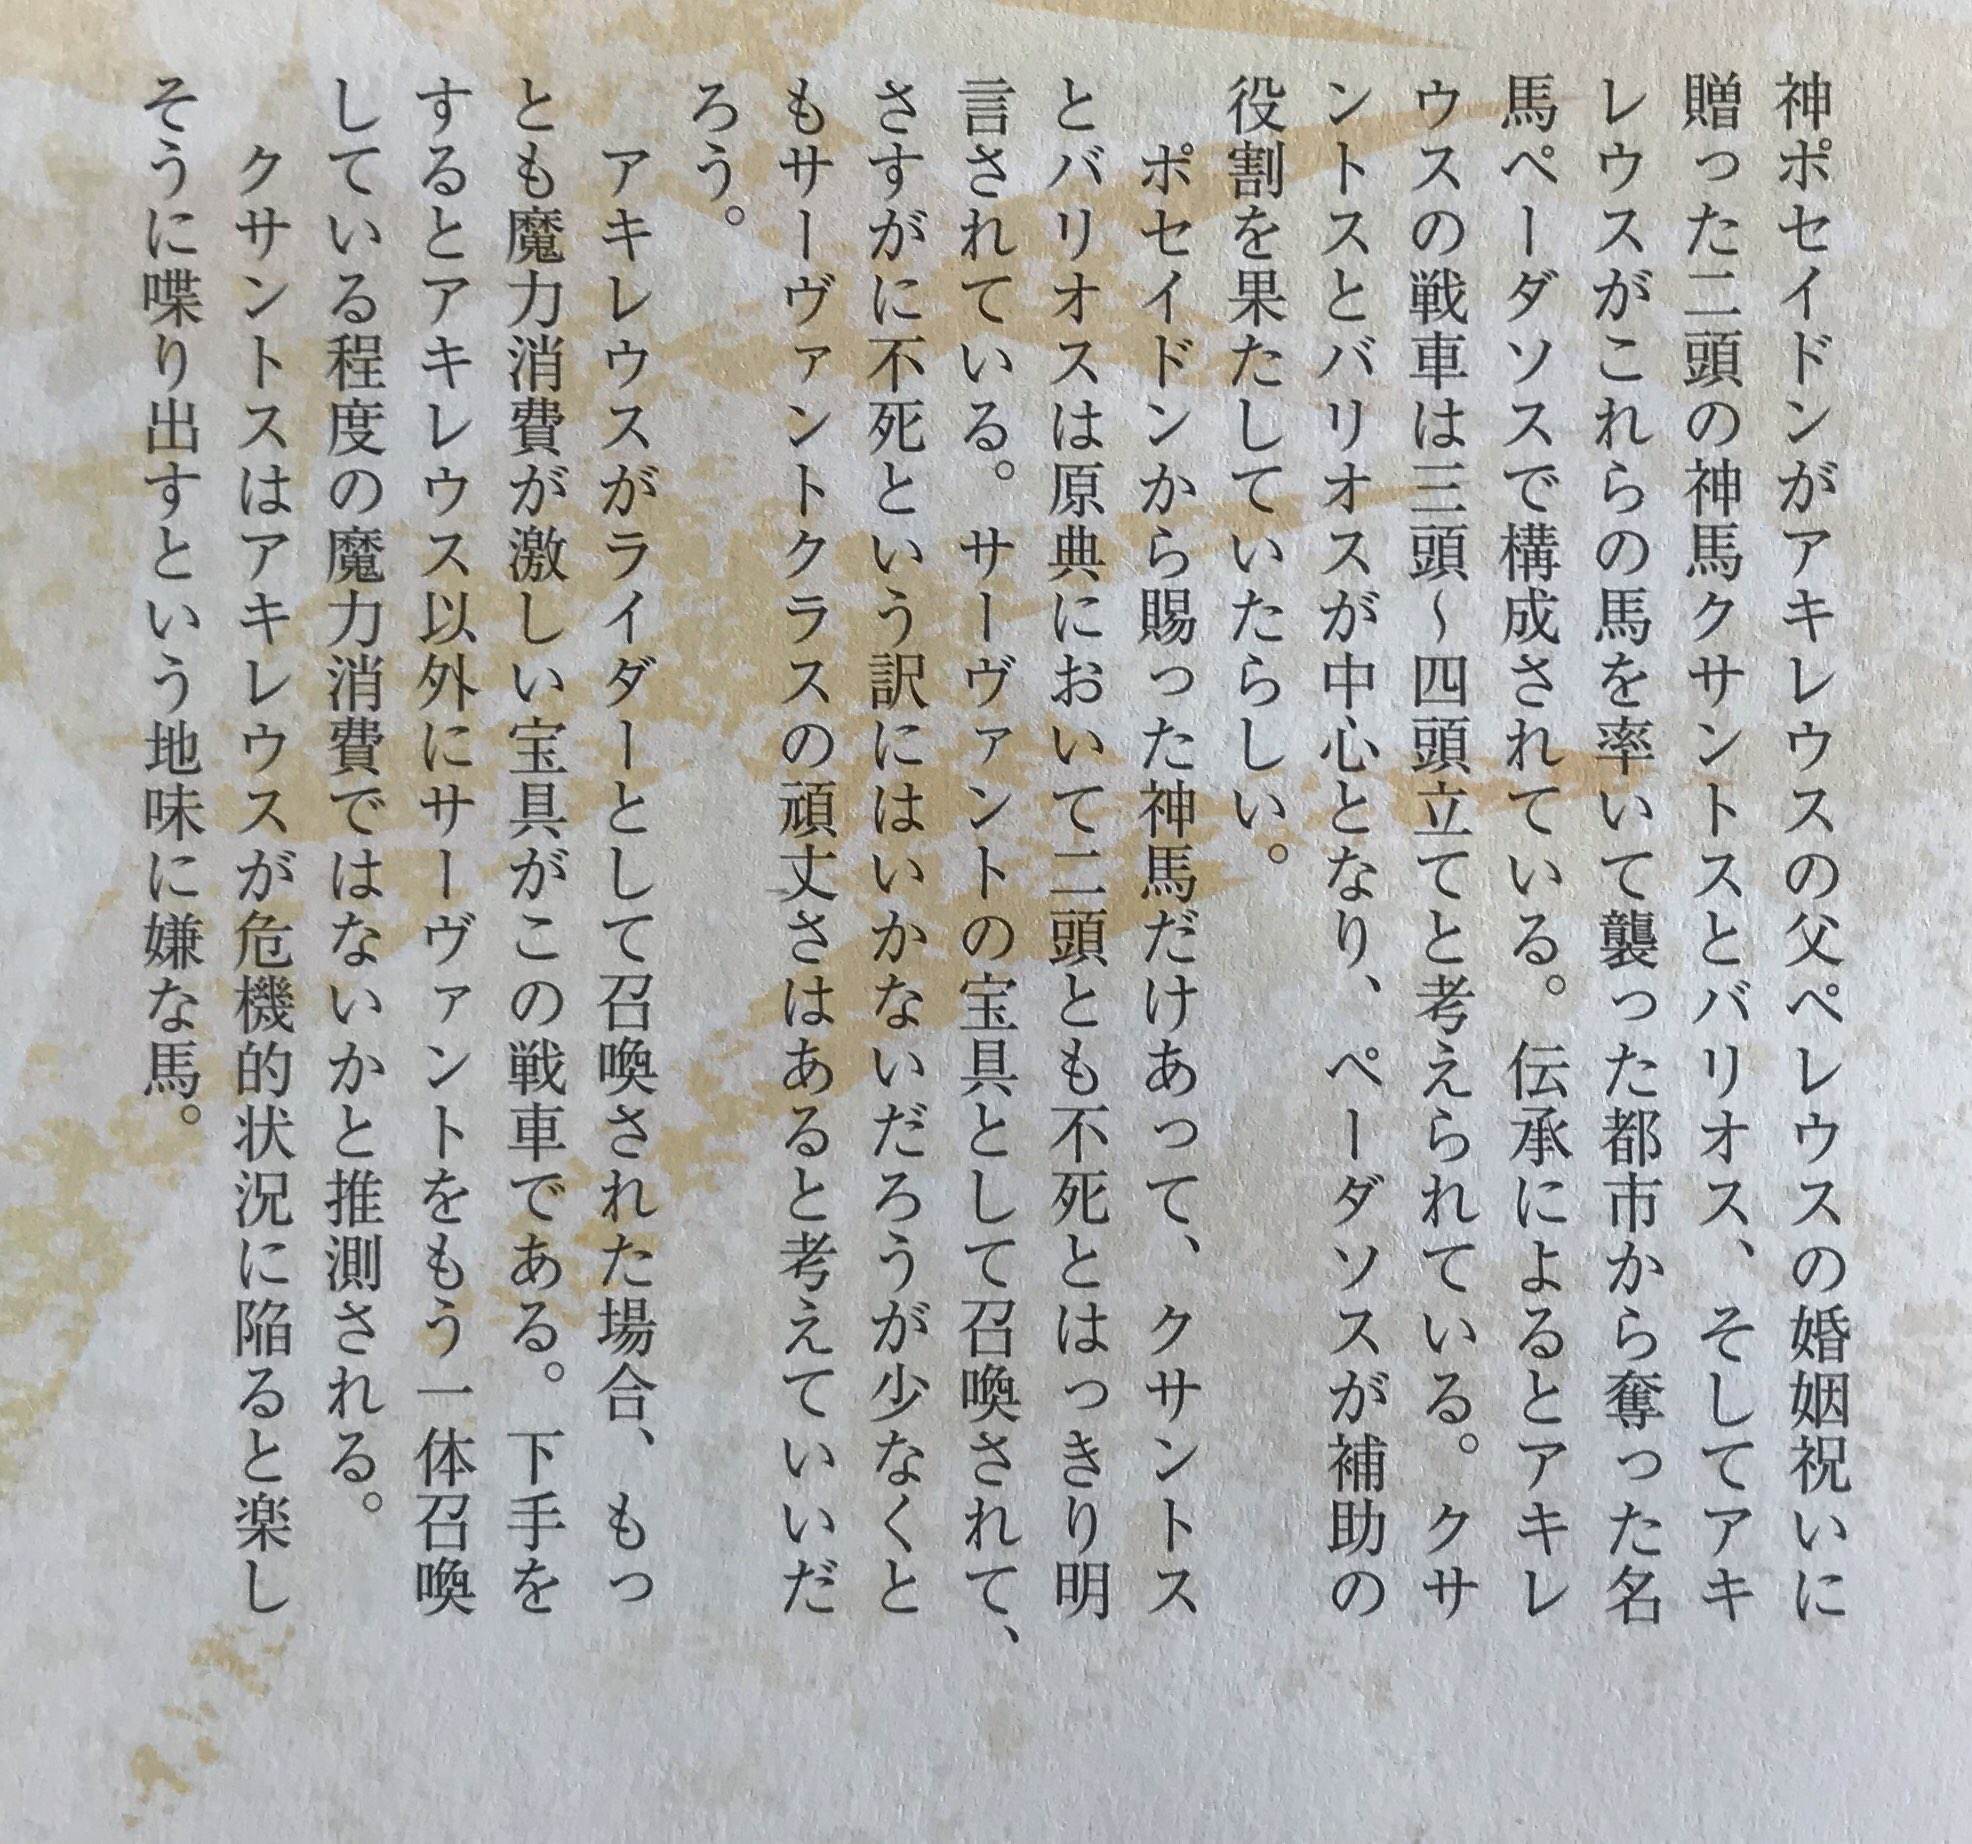 神ポセイドンがアキレウスの父ペレウスの婚姻祝いに
贈った二頭の神馬クサントスとバリオス、そしてアキ
レウスがこれらの馬を率いて襲った都市から奪った名
馬ペーダソスで構成されている。伝承によるとアキレ
ウスの戦車は三頭～四頭立てと考えられている。クサ
ントスとバリオスが中心となり、ペーダソスが補助の
役割を果たしていたらしい。
　ポセイドンから賜った神馬だけあって、クサントス
とバリオスは原典において二頭とも不死とはっきり明
言されている。サーヴァントの宝具として召喚されて、
さすがに不死という訳にはいかないだろうが少なくと
もサーヴァントクラスの頑丈さはあると考えていいだ
ろう。
　アキレウスがライダーとして召喚された場合、もっ
とも魔力消費が激しい宝具がこの戦車である。下手を
するとアキレウス以外にサーヴァントをもう一体召喚
している程度の魔力消費ではないかと推測される。
　クサントスはアキレウスが危機的状況に陥ると楽し
そうに喋り出すという地味に嫌な馬。